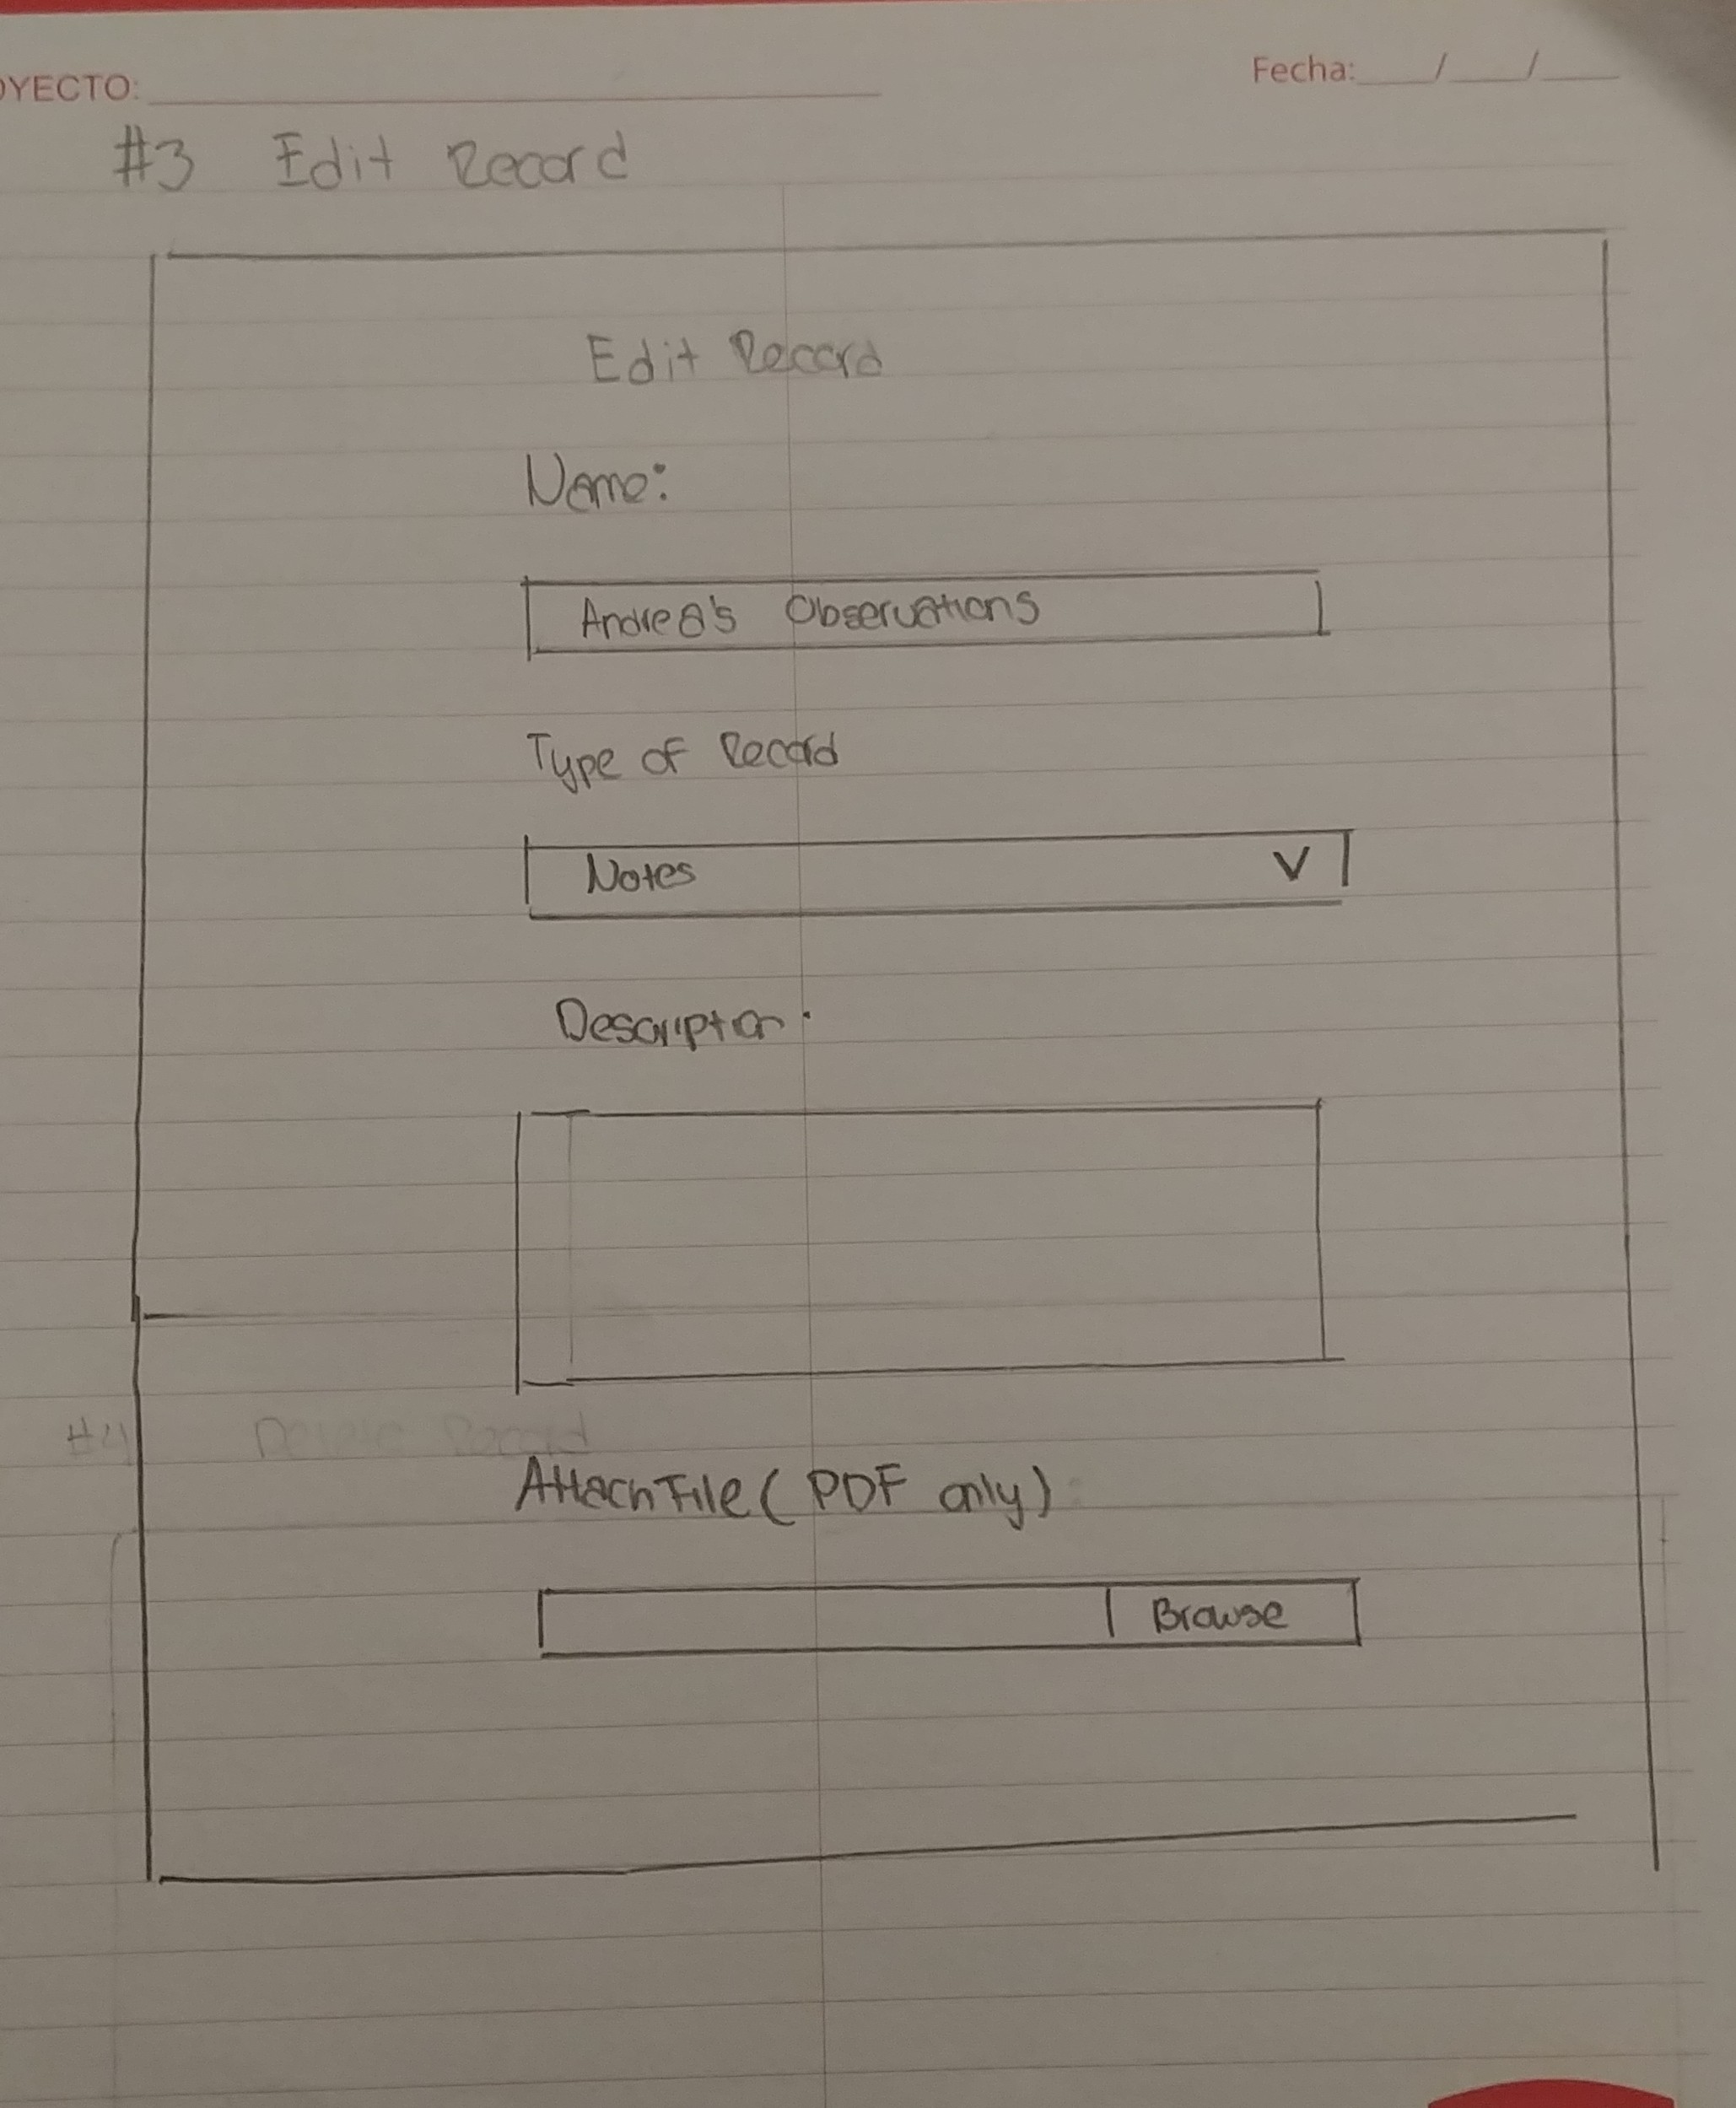 OYECTO:
Fecha: / /
#3 Edit Record
Edit Record
Name:
Andrea's Observations
Type of Record
Notes V
Description:
#4 Delete Record
Attach File (PDF only)
Browse